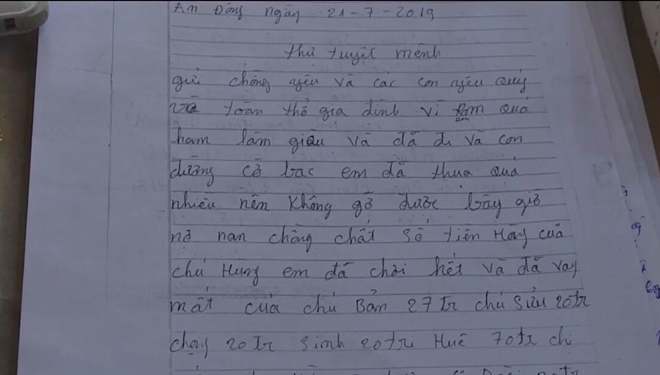 An Đồng ngày 21-7-2019
thư tuyệt mệnh
gửi chồng yêu và các con yêu quý
và toàn thể gia đình vì em quá
ham làm giàu và đã đi và con
đường cờ bạc em đã thua quá
nhiều nên không gỡ được bây giờ
nợ nan chồng chất số tiền
chú Hưng em đã chơi hết và đã vay
mất của chú Bản 27tr chú Sửu 20tr
chạy 20tr Sinh 20tr Huê 70tr chi